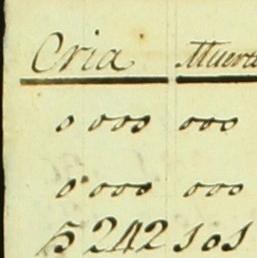 Cria Muert
0 000 000
0 000 000
5 242 101